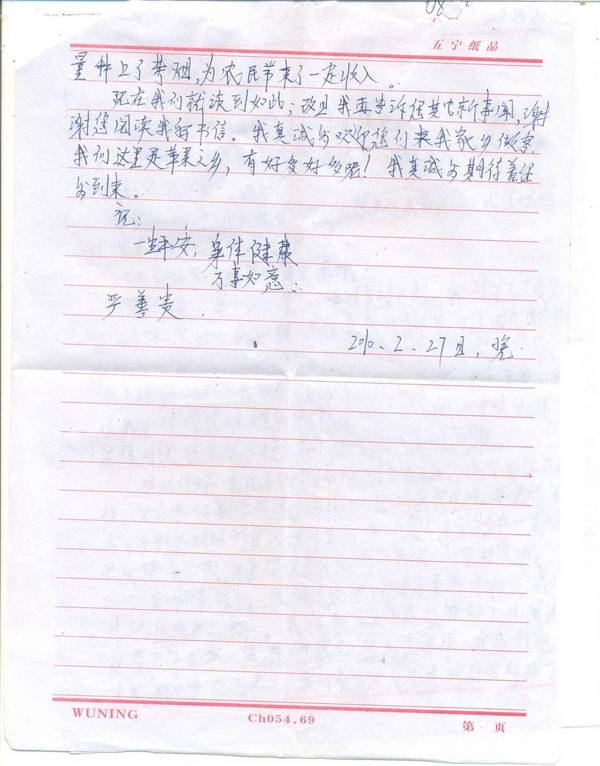 08
五宁纸品
量种上了棼烟,为农民带来了一定收入。
现在我们就谈到如此;改日我再告诉您其它新事闻,谢
谢您阅读我的书信。我真诚的欢迎您们来我家乡做客
我们这里是苹果之乡,有好多好多呢!我真诚的期待着您
的到来。
祝:
一生平安,身体健康
万事如意:
严善贵.
2010.2.27日,晚.
WUNING
Ch054.69
第 页